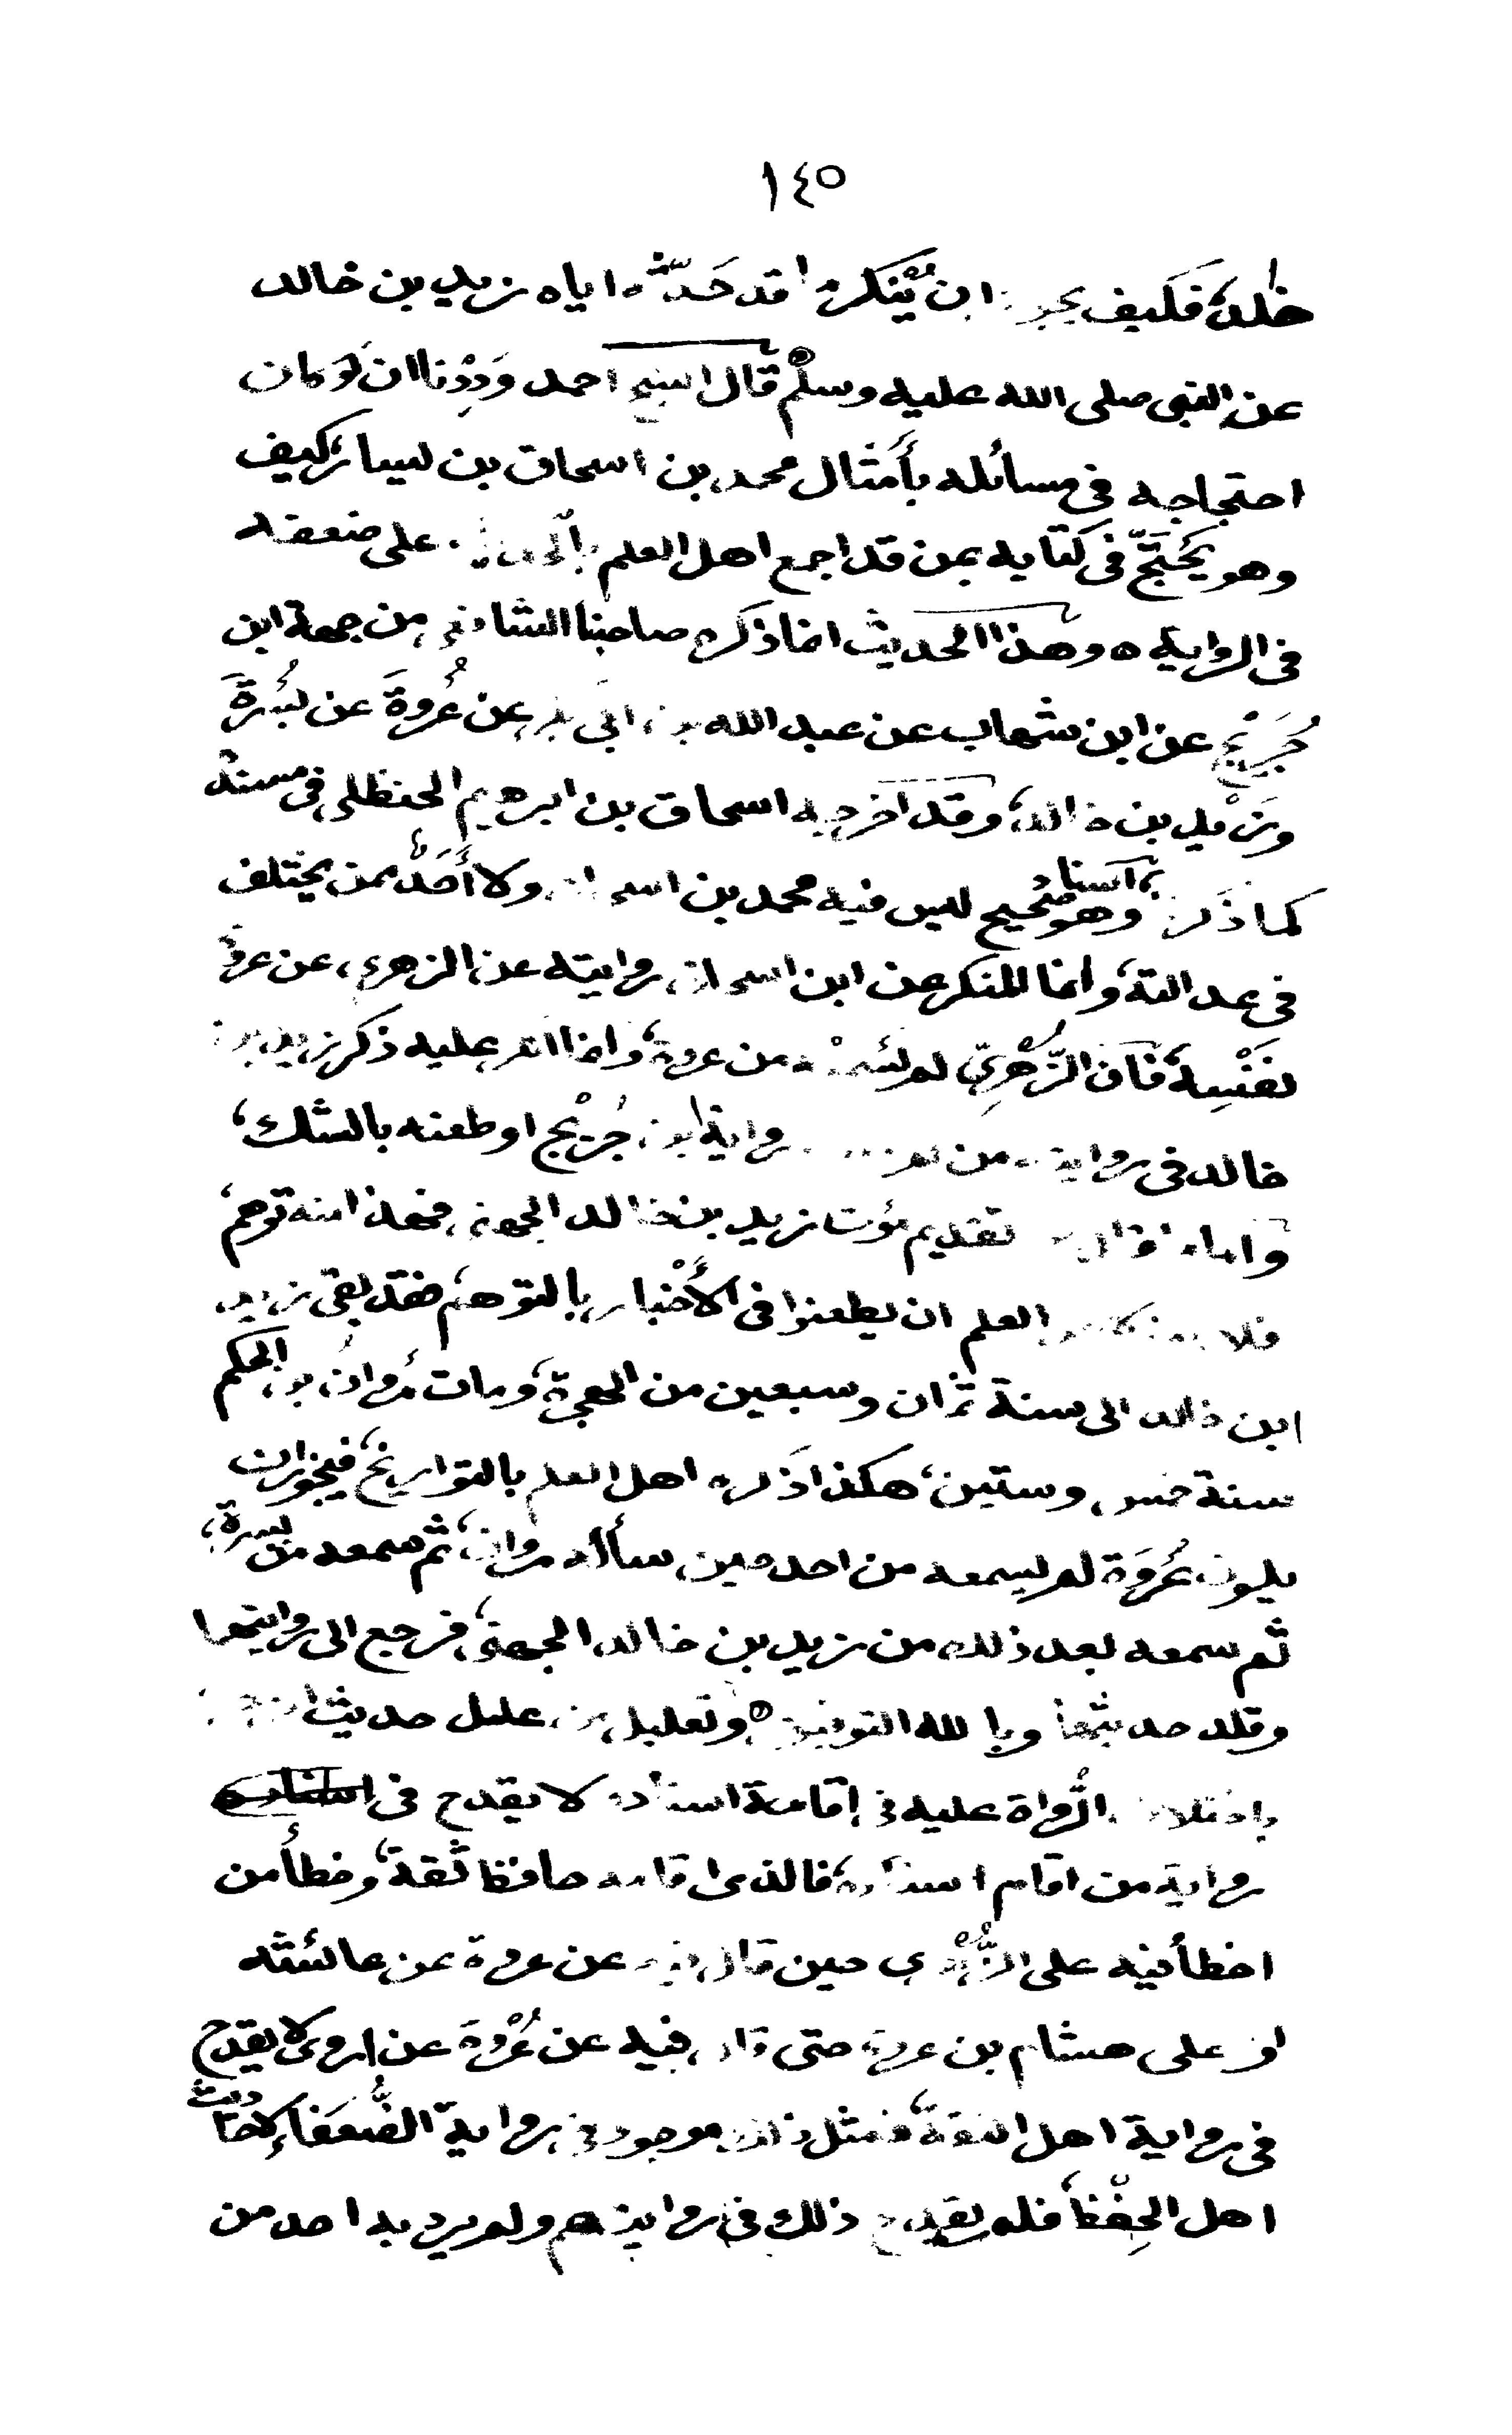 ١٤٥
خالد فكيف يجوز ان يُنكر ما قد حَدَّثه اياه زيد بن خالد
عن النبى صلى الله عليه وسلم قال الشيخ احمد وَدِدْنا ان لَو كان
احتجاجه فى مسائله بأَمثال محمد بن اسحاق بن يسار كيف
وهو يحْتَجّ فى كتابه بمن قد اجمع اهل العلم بالحديث على ضعفه
فى الرواية ه وهذا الحديث انما ذكره صاحبنا الشافعى من جهة ابن
جُرَيْج عن ابن شهاب عن عبد الله بن ابى بكر عن عُروةَ عن بُسْرَةَ
وزَيْد بن خالد، وقد اخرجه اسحاق بن ابرهيم الحنظلى فى مسنده
كما ذَكرنا، وهو اسناد صحيح ليس فيه محمد بن اسحاق، ولا أَحَدٌ ممن يختلف
فى عدالته، وانما المنكر عن ابن اسحاق روايته عن الزهرى، عن عروة
نَفْسِه، فان الزُّهْرِىّ لم يسْمعْه من عروة، وانما انكر عليه ذكر زيد بن
خالد فى روايته من رواية ابن جُرَيْج او طعنه بالشك،
واما ما قال من تقديم مَوْت زيد بن خالد الجهنى، فهذا منه توهم،
فلا العلم ان يطعنوا فى الأَخْبار بالتوهم، فقد بقى زيد
ابن خالد الى سنة ثمان وسبعين من الهجرة، ومات مَروان بن الحكم
سنة خمس وستين، هكذا ذَكره اهل العلم بالتواريخ، فيجوز ان
يكون عُروَة لم يسمعه من احد حين سأله مروان، ثم سمعه من بسرة،
ثم سمعه بعد ذلك من زيد بن خالد الجهنى، فرجع الى روايتهما
وقلد حديثهما وبالله التوفيق ه وتعليل من علل حديث
باختلاف الرُّواة عليه فى إقامة اسناده لا يقدح فى
رواية من اقام اسناده، فالذى اقامه حافظ ثقة، وخطأُ من
اخطأ فيه على الزُّهْرى حين قال فيه عن عروة عن عائشة
او على هشام بن عروة حتى قال فيه عن عُرْوَة عن اروى لا يقدح
فى رواية اهل الثقة، فمثل ذلك موجود فى رواية الضُّعَفاءِ لاحاديث
اهل الحِفْظ، فلم يقدح ذلك فى روايتهم ولم يرد به احد من